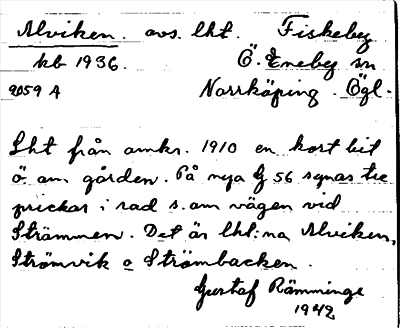 Alviken. avs. lht. Fiskeby
kb 1936. Ö. Eneby sn
9059 A Norrköping. Ögl.
Lht från omkr. 1910 en kort bit
ö om gården. På nya G 56 synas tre
prickar i rad s. om vägen vid
Strömmen. Det är lht:na Alviken,
Strömvik o Strömbacken.
Gustaf Rämminge
1942